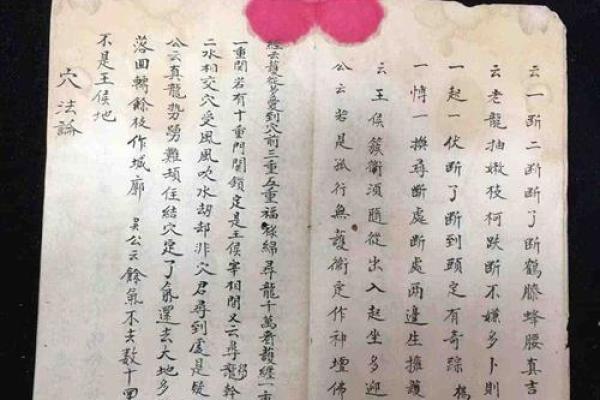 云一断二断断了断鶴膝蜂腰真吉
云老龍抽嫩枝柯跌断不嫌多卜則
一起一伏断了断到頭定有奇踪 楊
一愽一換尋断處断處両邉生擁護
云王侯簇衛須隨從出入起坐多迎
公云若是孤行無護衛定作神壇佛
經云護從多愛到穴前三重五重福綿尋龍千萬看護纏一重
一重関若有十重門関鎖定是王侯宰相関又云尋龍幹
二水相交穴受風風吹水刼却非穴君尋到處是疑
公云真龍勢勞難頓住結穴定了氣還去大地多
落回轉餘枝作城廓 吴公云餘氣不去数十里
不是王侯地
穴法論